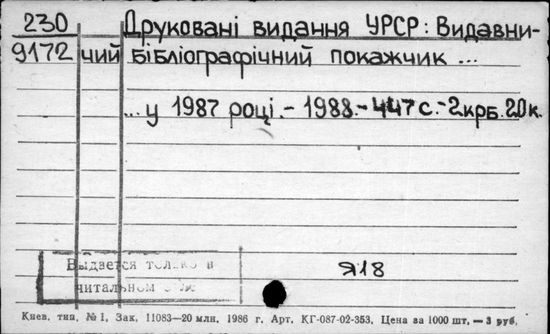 230 Друковані видання УРСР: Видавни-
9172 чий бібліографічний покажчик ...
... у 1987 році. - 1988. - 447 с. - 2 крб. 20 к.
Выдается только в
читальном
Я18
Киев. тип. № 1, Зак. 11083—20 млн. 1986 г. Арт. КГ-087-02-353, Цена за 1000 шт. — 3 руб.